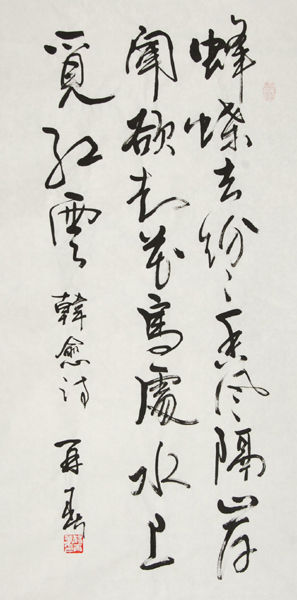 蜂蝶去紛々香風隔岸
聞欲知花島處水上
覓紅雲 韓愈詩 再